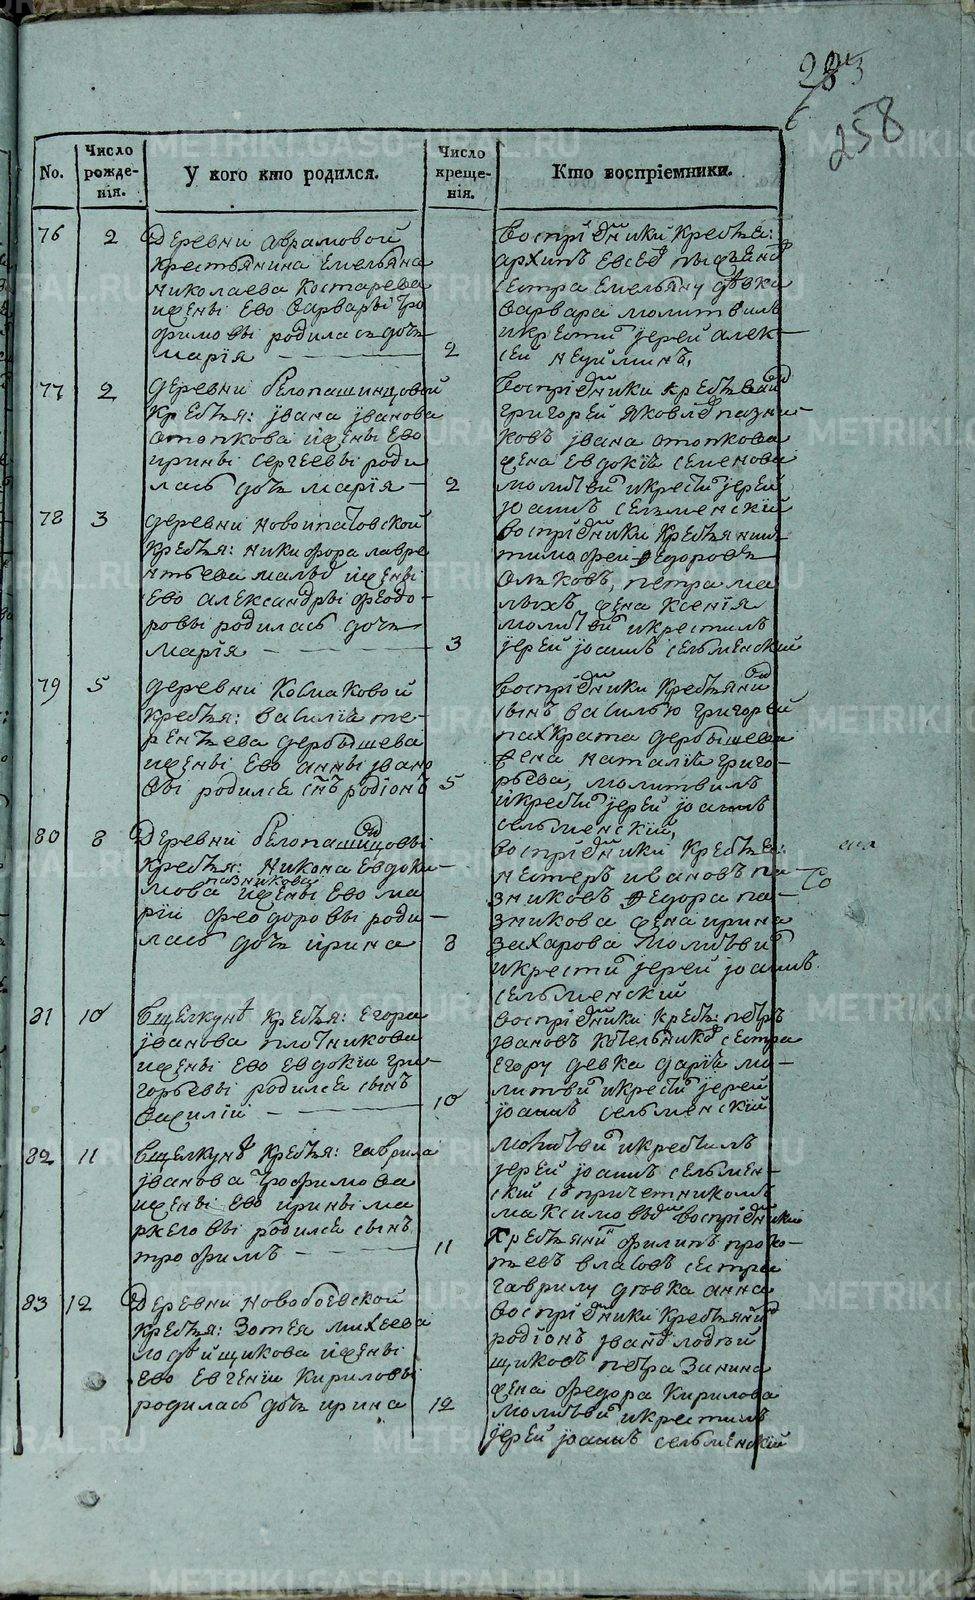 258
No.
Число рожде-нія.
У кого кто родился.
Число креще-нія.
Кто воспріемники.
76
2
Деревни Аврамовой
крестьянина Емельяна
Николаева Костарева
и жены ево Варвары Тро
фимовы родилась дочь
Мария
2
воспріемники крестья:
Архипъ Евсеев
сестра Емельяну девка
Варвара молитвилъ
и крестил иерей Алек
сей Неуйминъ,
77
2
деревни Белопашинцовой
крестья: Ивана Иванова
Отопкова и жены ево
Ирины Сергеевы роди
лась дочь Мария
2
воспріемники
Григорей Яковлев Пазни-
ковъ Ивана Отопкова
жена Евдокия Семенова
молитвил и крестил иерей
Иоаннъ Сельменский
78
3
деревни Новоипатовской
крестья: Никифора Лавре
нтьева Малых и жены
ево Александры Феодо-
ровы родилась дочь
Мария
3
воспріемники крестьянин
Тимофей Федоровъ
Волковъ, Петра Ма
лыхъ жена Ксения
молитвил и крестилъ
иерей Иоаннъ Сельменский
79
5
деревни Космаковой
крестья: Василия Те-
рентьева Дербышева
и жены ево Анны Ивано
вы родился снъ Родионъ
5
воспріемники
сынъ Василью Григорей
Панкрата Дербышева
жена Наталия Григо-
рьева, молитвилъ
и крестил иерей Иоаннъ
Сельменский,
80
8
Деревни Белопашинцовы
крестья: Никона Евдоки-
мова Пазникова и жены ево Ма
рии Феодоровы роди-
лась дочь Ирина
8
воспріемники крестья:
Нестеръ Ивановъ Па
зниковъ Федора Па-
зникова жена Ирина
Захарова молитвил
и крестил иерей Иоаннъ
Сельменский
81
10
В Щелкунѣ крестья: Егора
Иванова Плотникова
и жены ево Евдокии Гри-
горьевы родился сынъ
Василий
10
воспріемники крест: Петръ
Ивановъ Котельников сестра
Егору девка Дария мо-
литвил и крестил иерей
Иоаннъ Сельменский
82
11
В Щелкунѣ крестья: Гаврила
Иванова Трофимова
и жены ево Ирины Ма
ркеловы родился сынъ
Трофимъ
11
молитвил и крестилъ
иерей Иоаннъ Сельмен-
ский съ причетникомъ
воспріемники
крестьянин Филипъ Проко-
пьевъ Власовъ сестра
Гаврилу дѣвка Анна
83
12
Деревни Новобоевской
крестья: Зотея Михеева
Лодѣйщикова и жены
ево Евгении Кириловы
родилась дочь Ирина
12
воспріемники крестьянин
Родионъ Иванов Лодѣй
щиковъ Петра Зинина
жена Федора Кирилова
молитвил и крестилъ
иерей Иоаннъ Сельменский